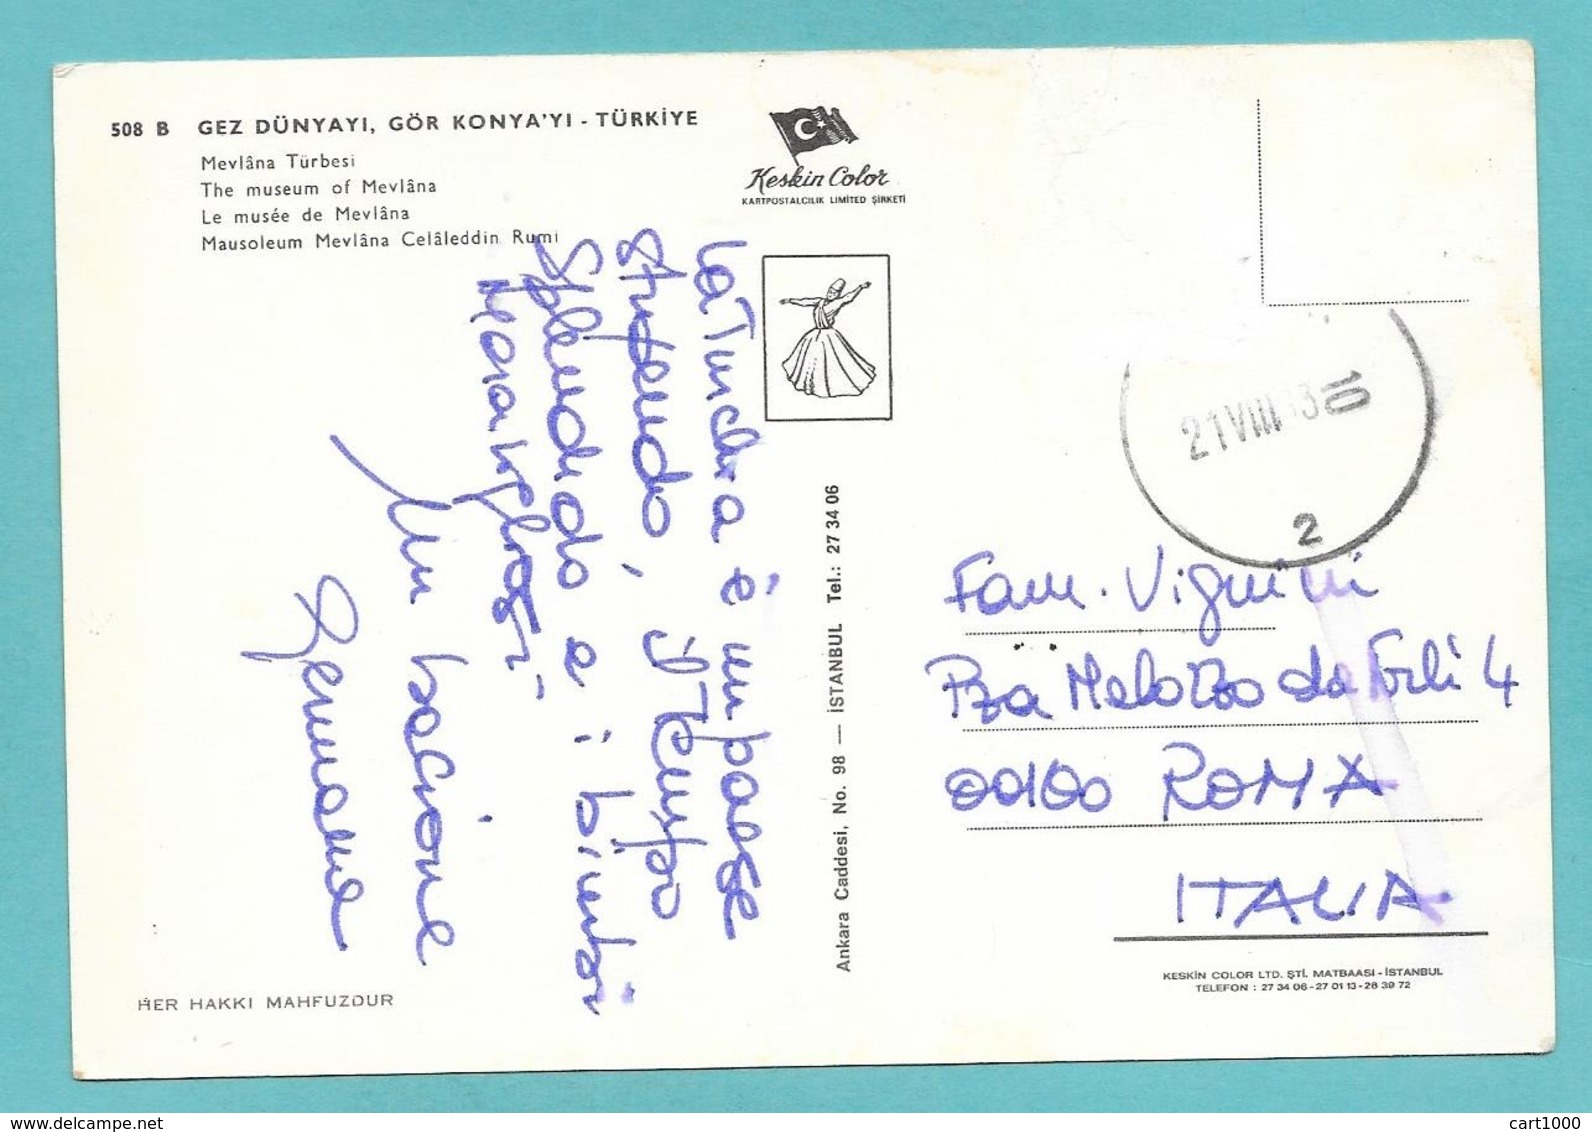 508 B GEZ DÜNYAYI, GÖR KONYA'YI - TÜRKİYE
Mevlâna Türbesi
The museum of Mevlâna
Le musée de Mevlâna
Mausoleum Mevlâna Celâleddin Rumi
Keskin Color
KARTPOSTALCILIK LIMITED ŞİRKETİ
La Turchia è un paese
stupendo, il tempo
splendido e i bimbi
meravigliosi
Un bacione
Ankara Caddesi, No. 98 — İSTANBUL Tel.: 27 34 06
21 VIII 3 10
2
Fam. Vignini
Pza Melozzo da Forlì 4
00100 ROMA
ITALIA
KESKİN COLOR LTD. ŞTİ. MATBAASI - İSTANBUL
TELEFON : 27 34 06 - 27 01 13 - 28 39 72
HER HAKKI MAHFUZDUR
cart1000